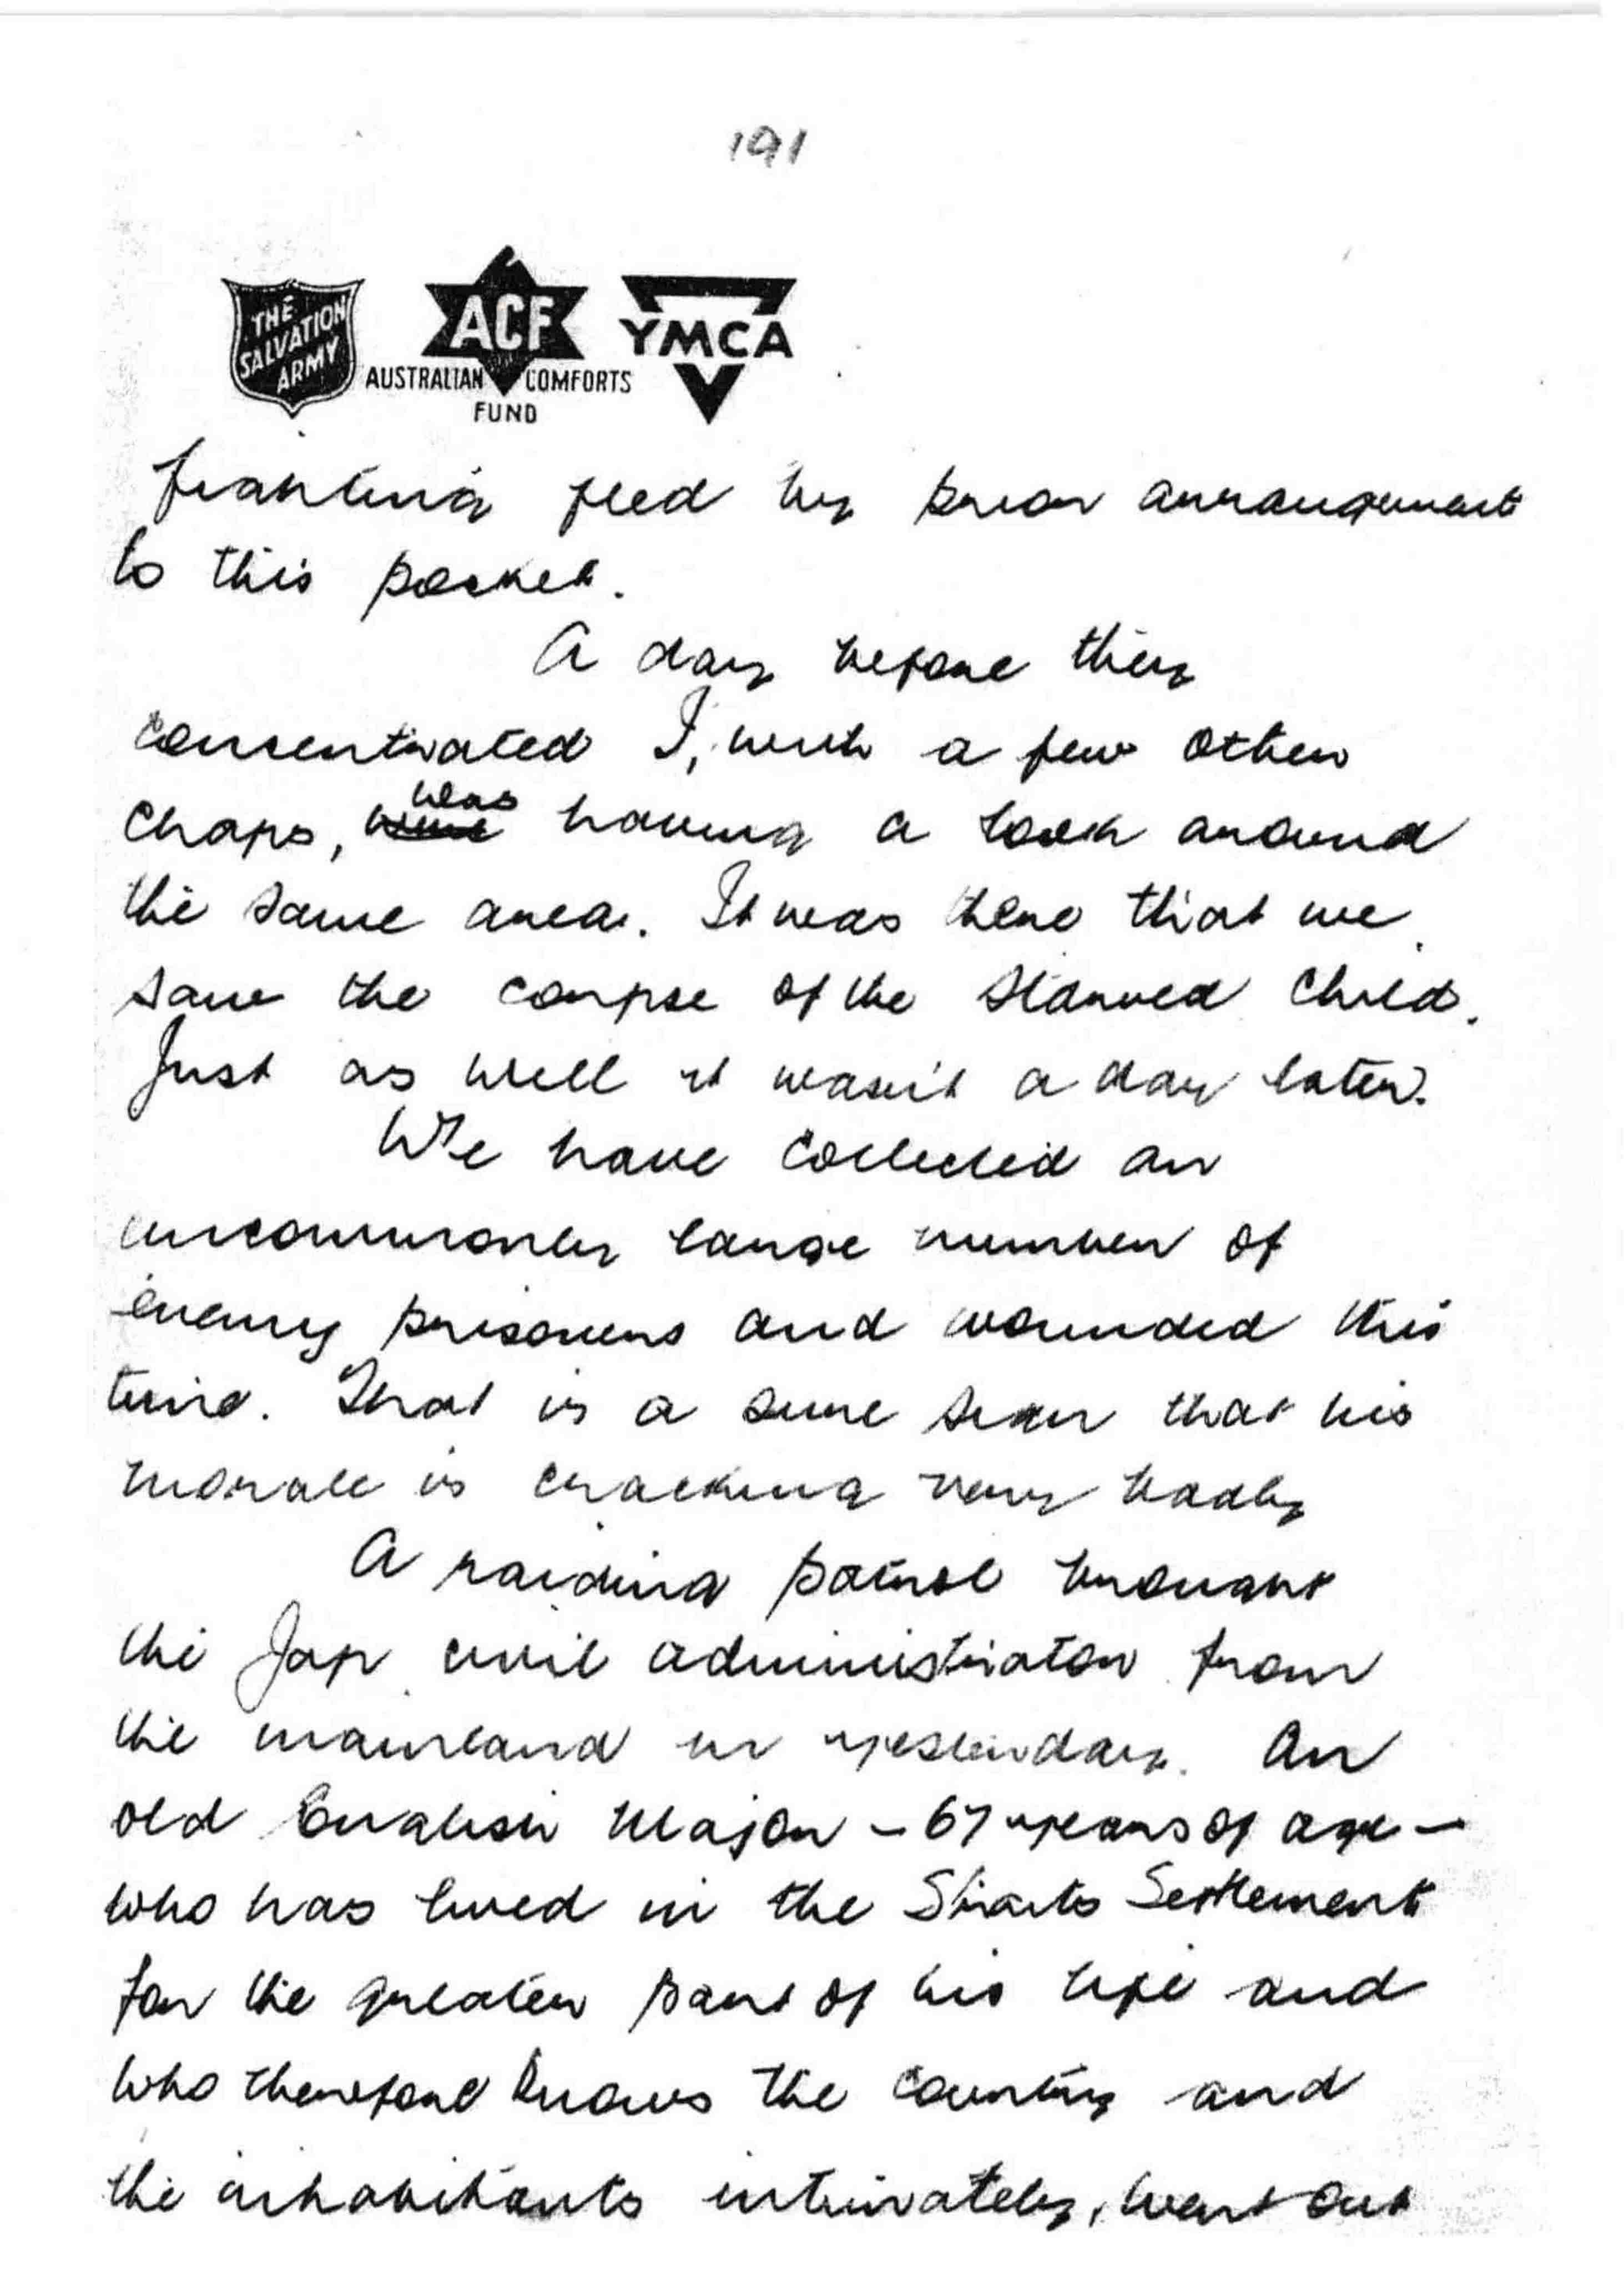 191
THE SALVATION ARMY
ACF
AUSTRALIAN COMFORTS FUND
YMCA
fighting fled by prior arrangement
to this pocket.
A day before they
consentrated I, with a few other
chaps, ~~were~~ was having a look around
the same area. It was here that we
saw the corpse of the starved child.
Just as well it wasn't a day later.
We have collected an
uncommonly large number of
enemy prisoners and wounded this
time. That is a sure sign that his
morale is cracking very badly
A raiding patrol brought
the Jap civil administrator from
the mainland in yesterday. An
old English Major – 67 years of age –
who has lived in the Straits Settlement
for the greater part of his life and
who therefore knows the country and
the inhabitants intimately, went out